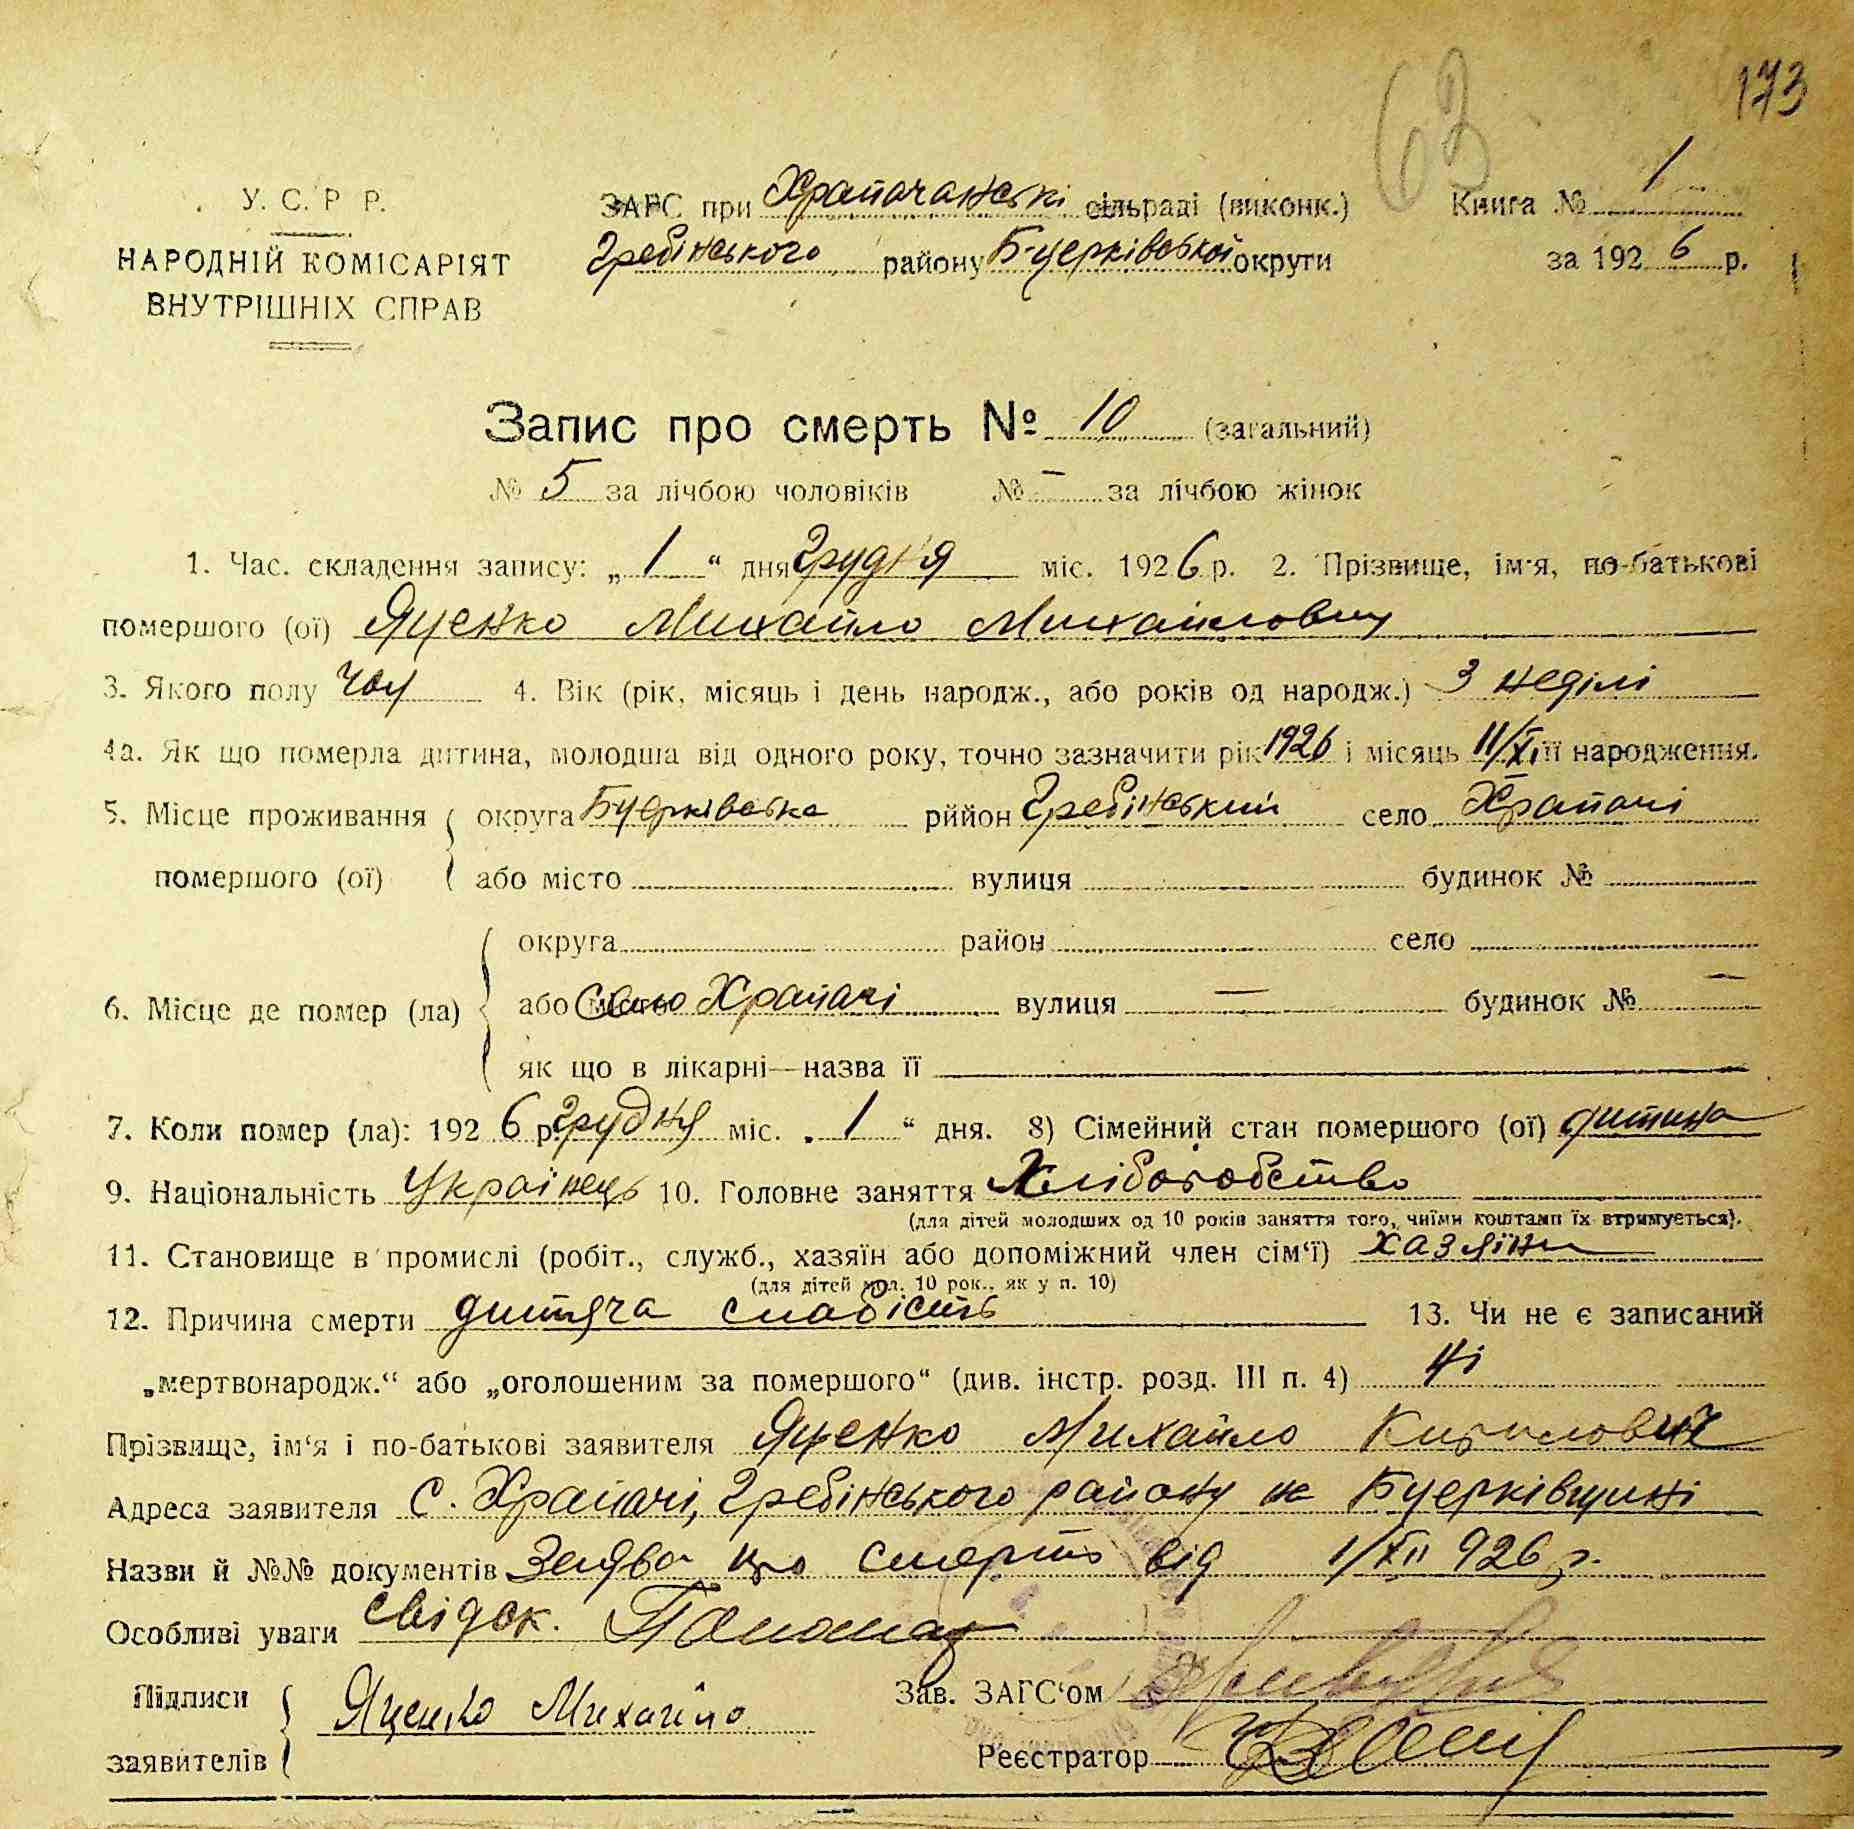 63 173
У. С. Р Р. ЗАГС при Храпачанські сільраді (виконк.) Книга № 1
НАРОДНІЙ КОМІСАРІЯТ Гребінського району Б-церківської округи за 1926 р.
ВНУТРІШНІХ СПРАВ
Запис про смерть № 10 (загальний)
№ 5 за лічбою чоловіків № – за лічбою жінок
1. Час. складення запису: „1“ дня Грудня міс. 1926 р. 2. Прізвище, ім'я, по-батькові
помершого (ої) Яценко Михайло Михайлович
3. Якого полу чол 4. Вік (рік, місяць і день народж., або років од народж.) 3 неділі
4а. Як що померла дитина, молодша від одного року, точно зазначити рік 1926 і місяць 11/XI її народження.
5. Місце проживання округа Бцерківська рййон Гребінський село Храпачі
помершого (ої) або місто вулиця будинок №
округа район село
6. Місце де помер (ла) або місто Село Храпачі вулиця — будинок № —
як що в лікарні—назва її
7. Коли помер (ла): 1926 р. Грудня міс. „1“ дня. 8) Сімейний стан помершого (ої) дитина
9. Національність Українець 10. Головне заняття Хліборобство
(для дітей молодших од 10 років заняття того, чиїми коштами їх втримується).
11. Становище в промислі (робіт., служб., хазяїн або допоміжний член сім‘ї) хазяїни
(для дітей мол. 10 рок., як у п. 10)
12. Причина смерти дитяча слабість 13. Чи не є записаний
„мертвонародж.“ або „оголошеним за помершого“ (див. інстр. розд. III п. 4) ні
Прізвище, ім‘я і по-батькові заявителя Яценко Михайло Кирилович
Адреса заявителя С. Храпачі, Гребінського району на Бцерківщині
Назви й №№ документів Заява про смерть від 1/XII 926 р.
Особливі уваги свідок.
Підписи Яценко Михайло Зав. ЗАГС‘ом
заявителів Реєстратор